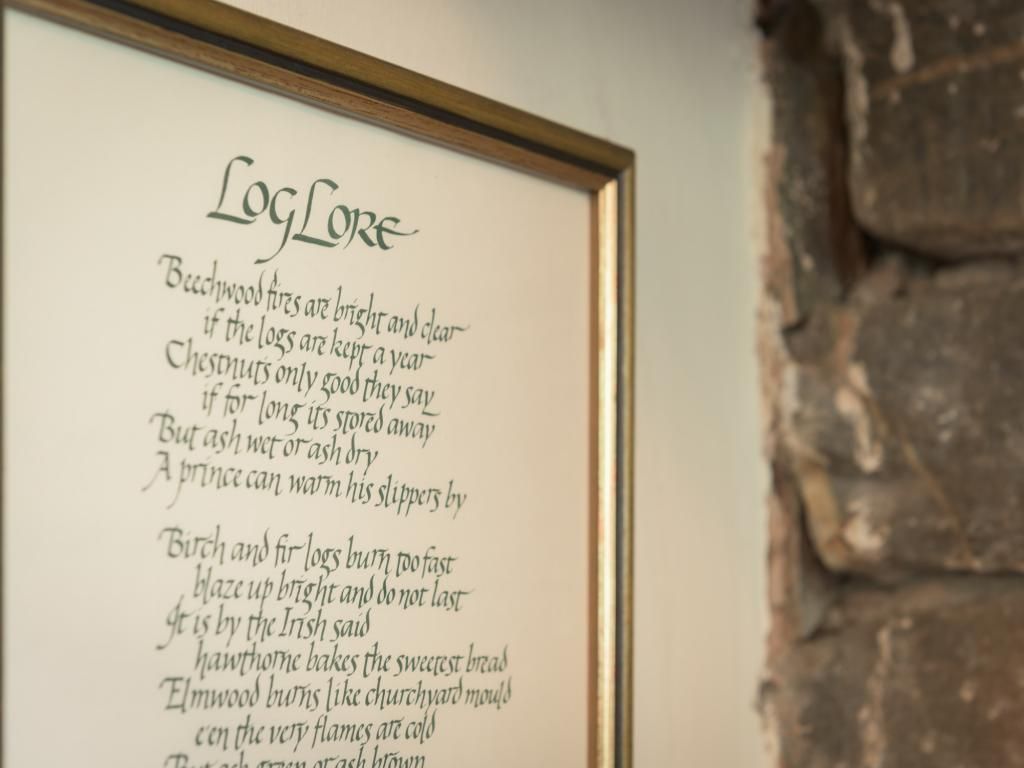 LOG LORE
Beechwood fires are bright and clear
if the logs are kept a year
Chestnuts only good they say
if for long its stored away
But ash wet or ash dry
A prince can warm his slippers by
Birch and fir logs burn too fast
blaze up bright and do not last
It is by the Irish said
hawthorne bakes the sweetest bread
Elmwood burns like churchyard mould
e'en the very flames are cold
But ash green or ash brown